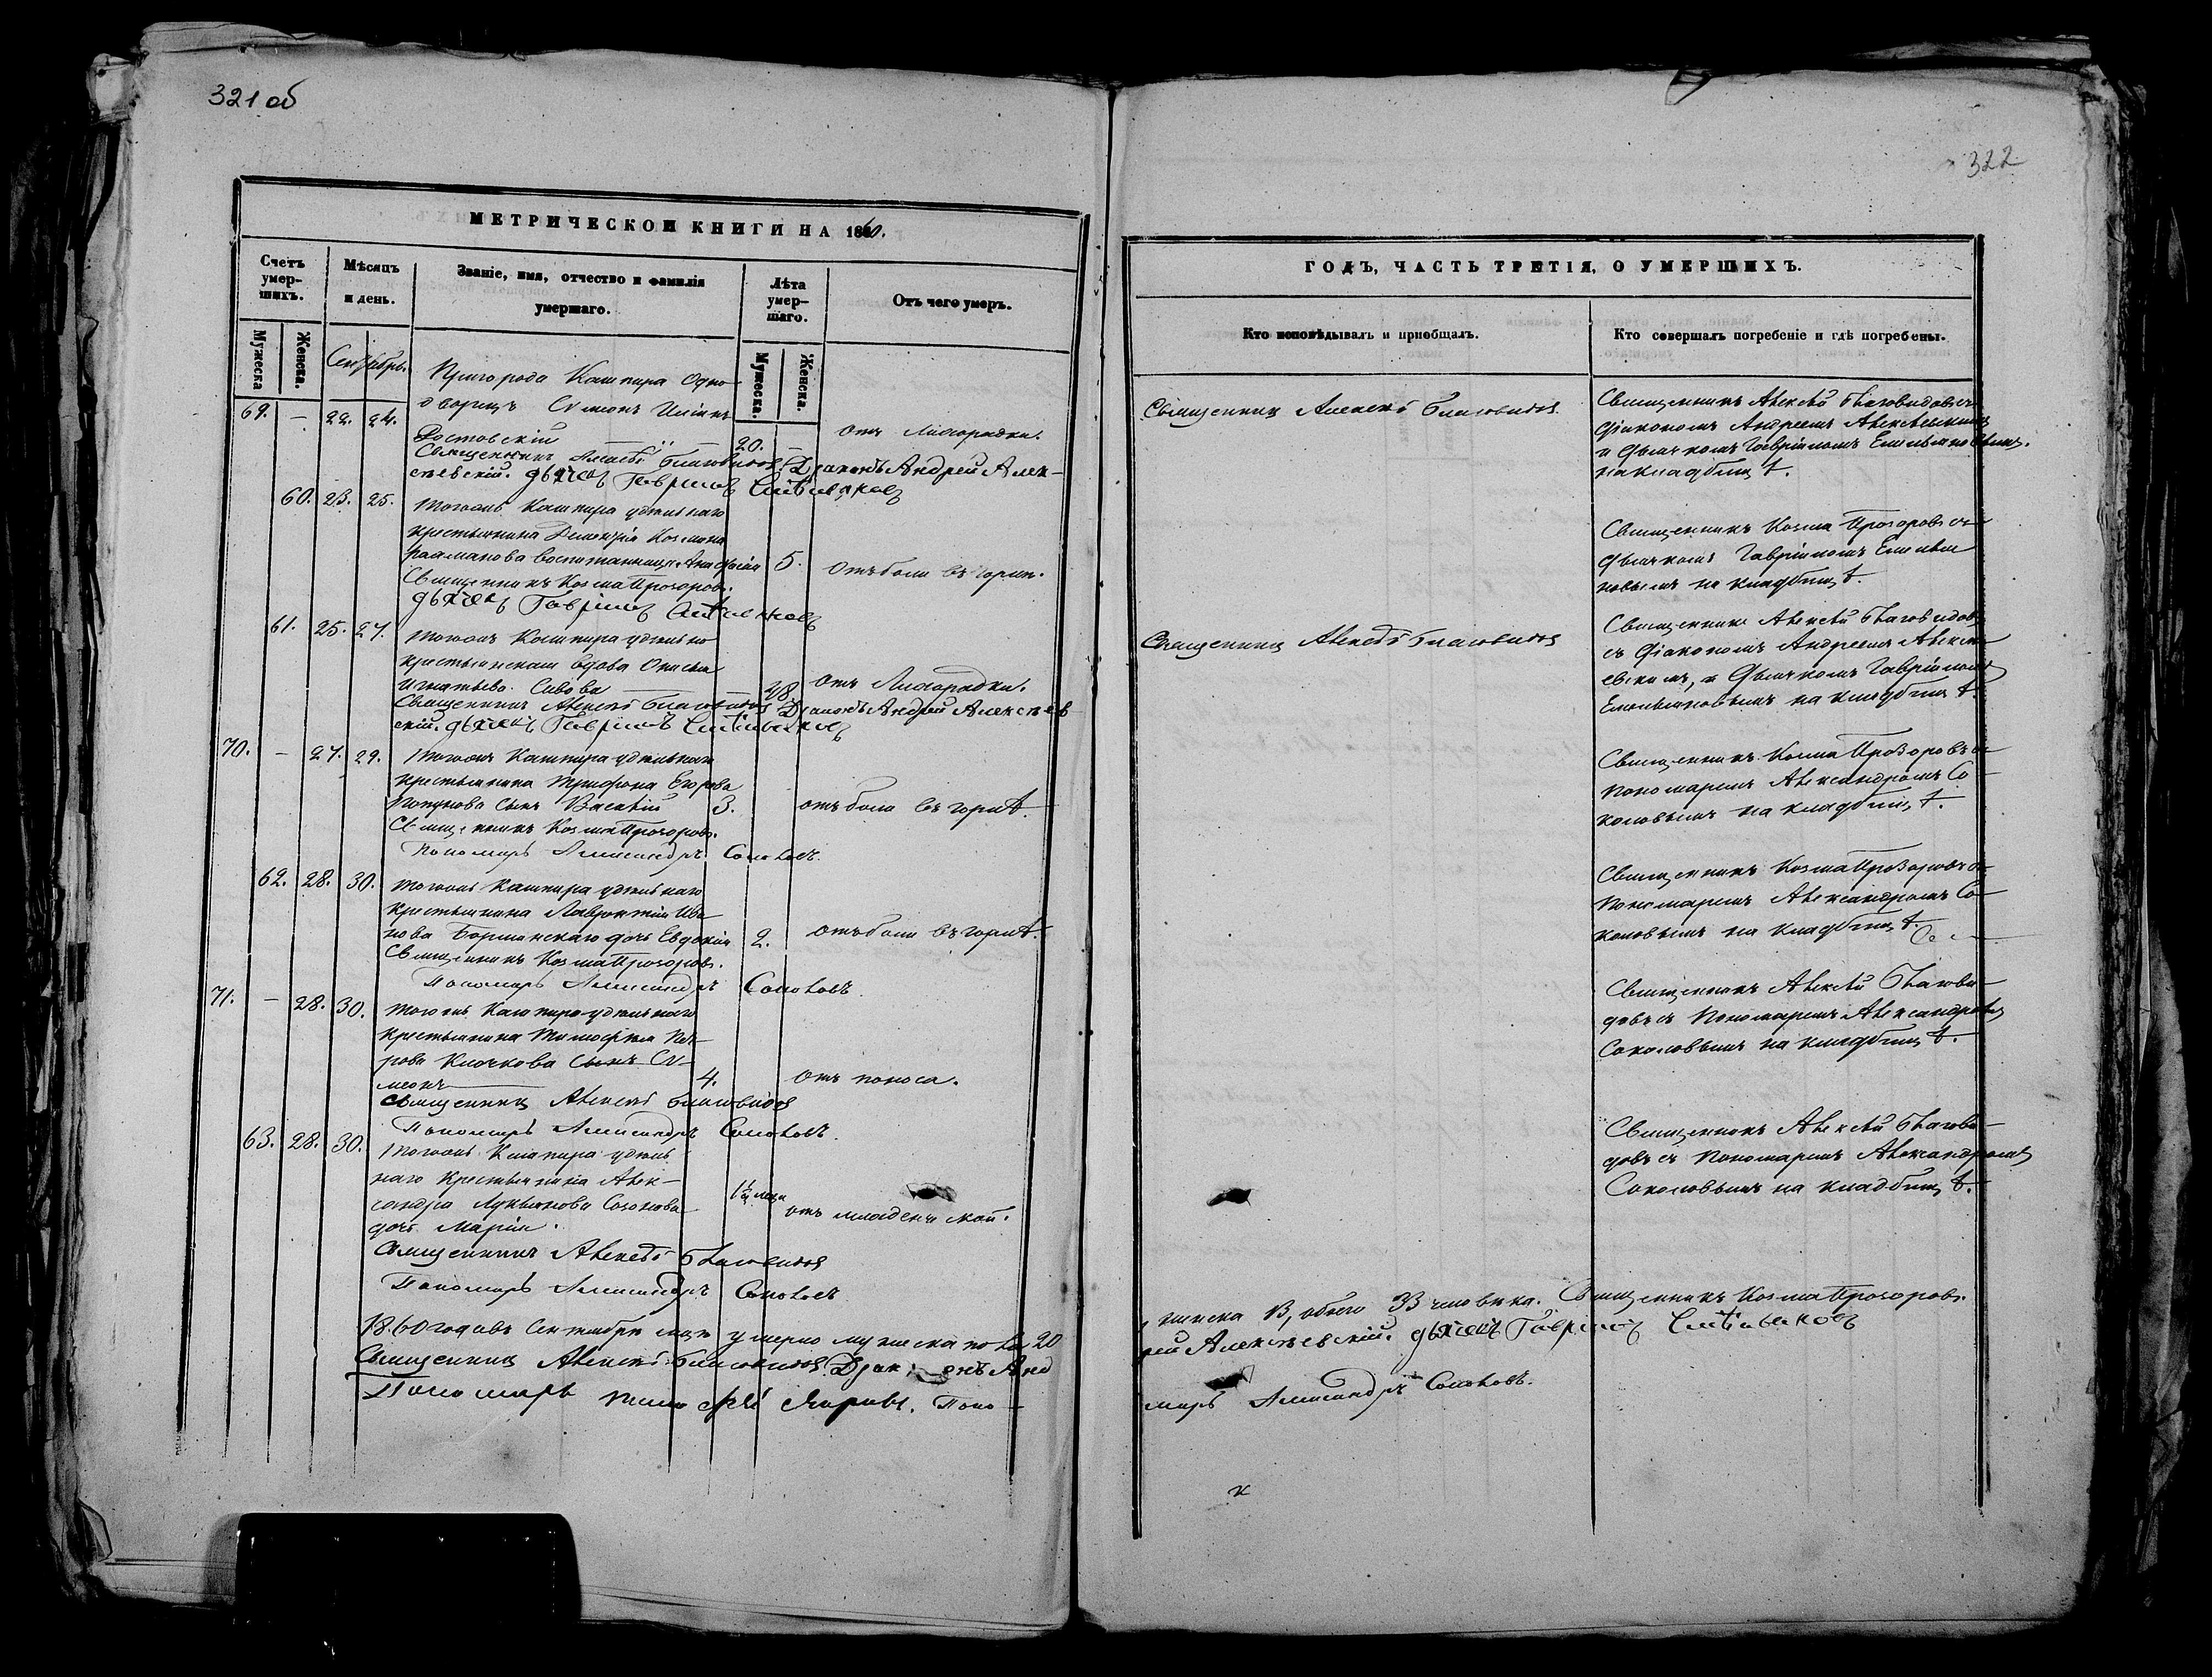 321 об
МЕТРИЧЕСКОЙ КНИГИ НА 1860.
Счетъ умер-шихъ.
Мужеска
Женска.
Мѣсяцъ и день.
Званіе, имя, отчество и фамилія умершаго.
Лѣта умер-шаго.
Мужеска.
Женска.
Отъ чего умеръ.
Сентябрь.
Пригорода Кашпира Одно-
69. — 22. 24. дворецъ Симеонъ
Ростовскій 20. — отъ Лихорадки.
Священникъ Алексѣй Благовидовъ Діаконъ Андрей Алек-
сѣевскій. дьячекъ Гавріилъ
60. 23. 25. тогожъ Кашпира удѣльнаго
крестьянина Дементія Козмина
воспитанница 5. отъ боли въ горлѣ.
Священникъ Козма Прозоровъ.
дьячекъ Гавріилъ
61. 25. 27. тогожъ Кашпира удѣльно
крестьянская вдова
Игнатьева 48. отъ Лихорадки.
Священникъ Алексѣй Благовидовъ Діаконъ Андрей Алексѣев
скій. дьячекъ Гавріилъ
70. — 27. 29. тогожъ Кашпира удѣльнаго
крестьянина Трифона Егорова
сынъ Василій 3. отъ боли въ горлѣ.
Священникъ Козма Прозоровъ.
Пономарь Александръ Соколовъ.
62. 28. 30. тогожъ Кашпира удѣльнаго
крестьянина Лаврентія Ива-
нова дочь Евдокія 2. отъ боли въ горлѣ.
Священникъ Козма Прозоровъ.
Пономарь Александръ Соколовъ.
71. — 28. 30. тогожъ Кашпира удѣльнаго
крестьянина Тимофея Пет-
рова Клочкова сынъ Си-
меонъ 4. отъ поноса.
Священникъ Алексѣй Благовидовъ
Пономарь Александръ Соколовъ.
63. 28. 30. тогожъ Кашпира удѣль
наго крестьянина Алек-
сандра Лукьянова 1½ мѣся отъ младенческой.
дочь Марія.
Священникъ Алексѣй Благовидовъ
Пономарь Александръ Соколовъ.
1860 года въ Сентябрѣ мцѣ умерло мужеска пола 20
Священникъ Алексѣй Благовидовъ Діаконъ Анд
Пономарь Тимофей Поно-
322
ГОДЪ, ЧАСТЬ ТРЕТІЯ, О УМЕРШИХЪ.
Кто исповѣдывалъ и пріобщалъ.
Кто совершалъ погребеніе и гдѣ погребены.
Священникъ Алексѣй Благовидовъ.
Священникъ Алексѣй Благовидовъ съ
Діакономъ Андреемъ Алексѣевскимъ
и Дьячкомъ Гавріиломъ Емельяновымъ.
на кладбищѣ.
Священникъ Козма Прозоровъ съ
дьячкомъ Гавріиломъ Емелья
новымъ на кладбищѣ.
Священникъ Алексѣй Благовидовъ
Священникъ Алексѣй Благовидовъ
съ Діакономъ Андреемъ Алексѣ
евскимъ, и Дьячкомъ Гавріиломъ
Емельяновымъ на кладбищѣ.
Священникъ Козма Прозоровъ съ
Пономаремъ Александромъ Со-
коловымъ на кладбищѣ.
Священникъ Козма Прозоровъ съ
Пономаремъ Александромъ Со-
коловымъ на кладбищѣ.
Священникъ Алексѣй Благови-
довъ съ Пономаремъ Александромъ
Соколовымъ на кладбищѣ.
Священникъ Алексѣй Благови-
довъ съ Пономаремъ Александромъ
Соколовымъ на кладбищѣ.
женска 13, обоего 33 человѣка. Священникъ Козма Прозоровъ.
рей Алексѣевскій. дьячекъ Гавріилъ
марь Александръ Соколовъ.